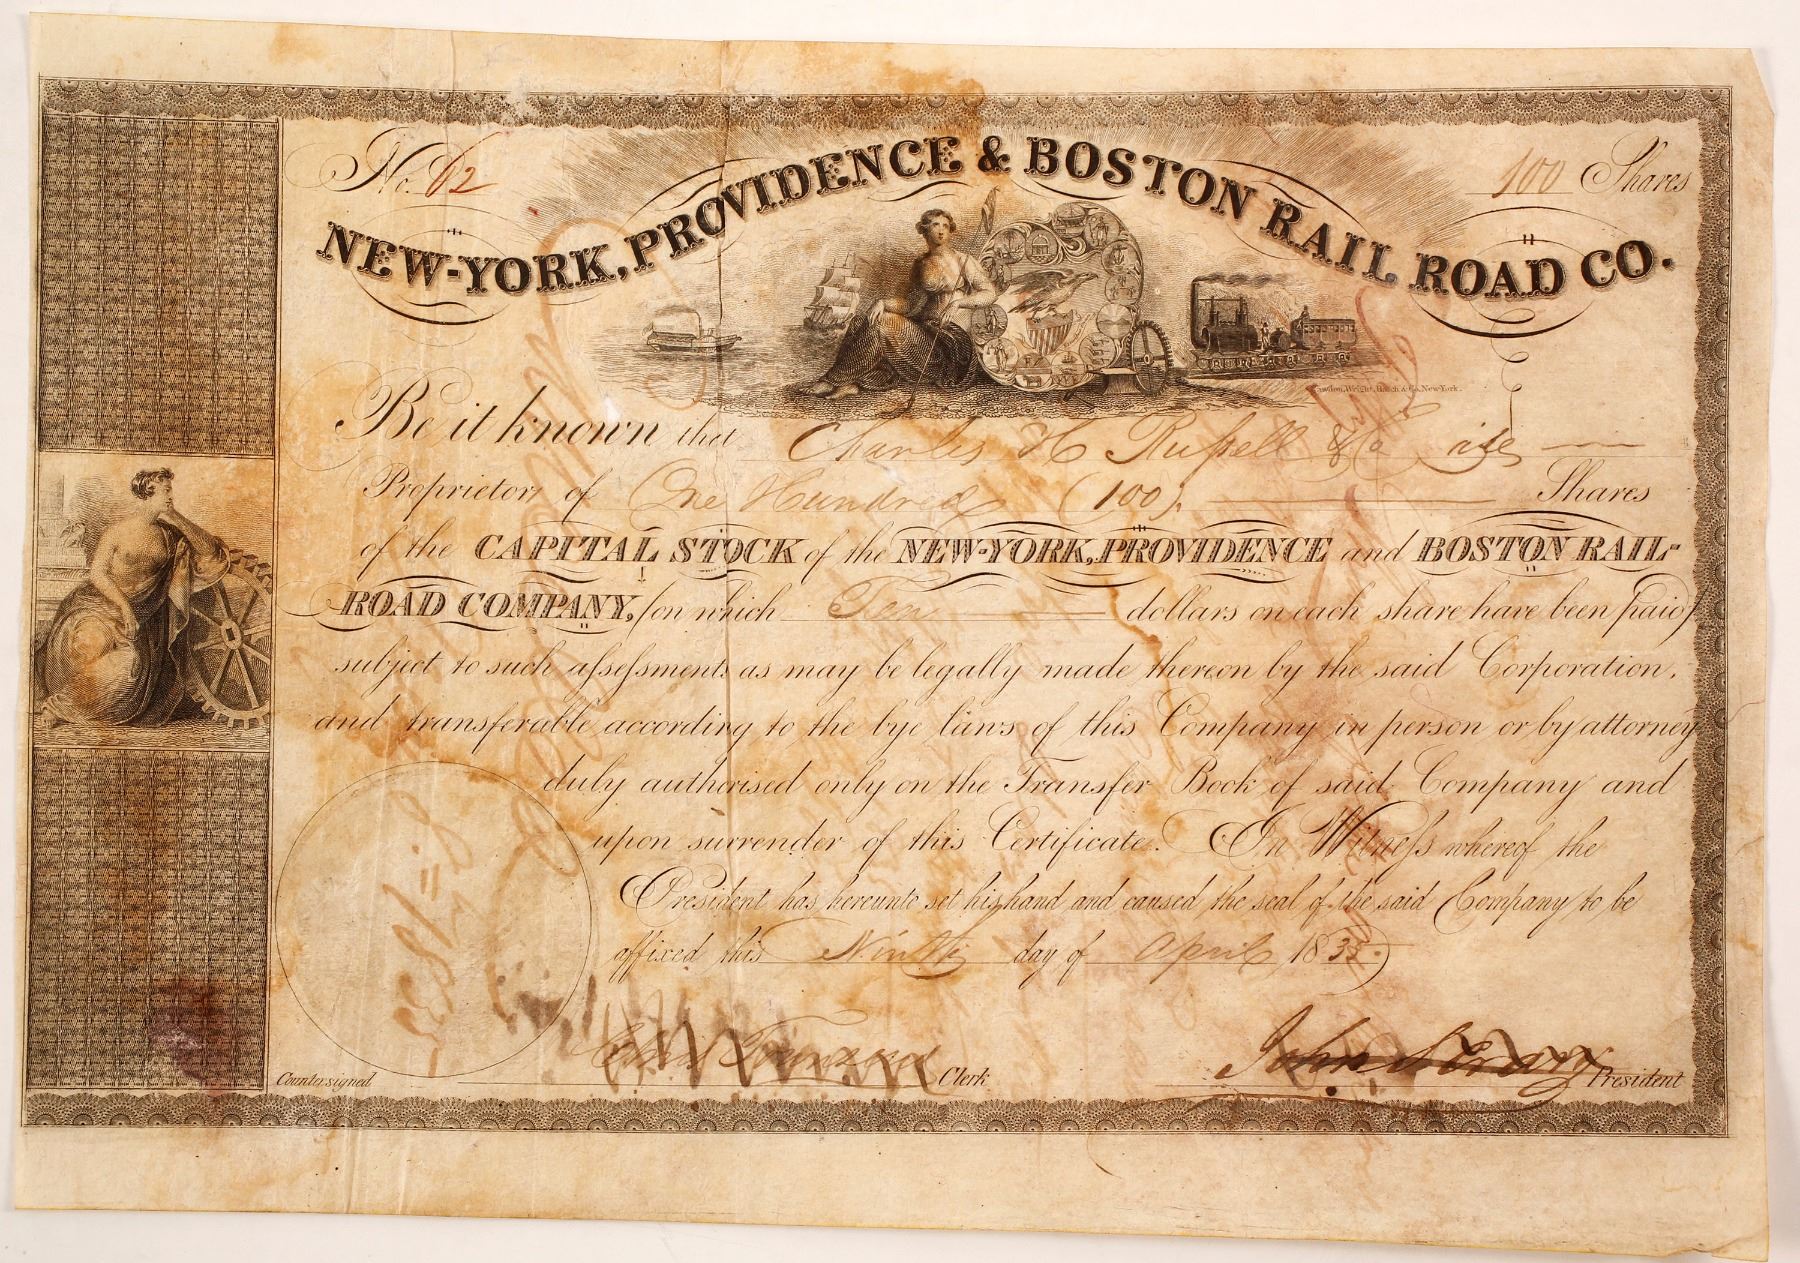 No. 62
100 Shares
NEW-YORK, PROVIDENCE & BOSTON RAIL ROAD CO.
Rawdon, Wright, Hatch & Co. New-York.
Be it known that Charles H Russell & Co
Proprietors of One Hundred (100). Shares
of the CAPITAL STOCK of the NEW-YORK, PROVIDENCE and BOSTON RAIL-
ROAD COMPANY, (on which Ten dollars on each share have been paid)
subject to such assessments as may be legally made thereon by the said Corporation,
and transferable according to the bye laws of this Company in person or by attorney
duly authorised only on the Transfer Book of said Company and
upon surrender of this Certificate. In Witness whereof the
President has hereunto set his hand and caused the seal of the said Company to be
affixed this Ninth day of April 1835.
Countersigned Clerk
John S Crary President